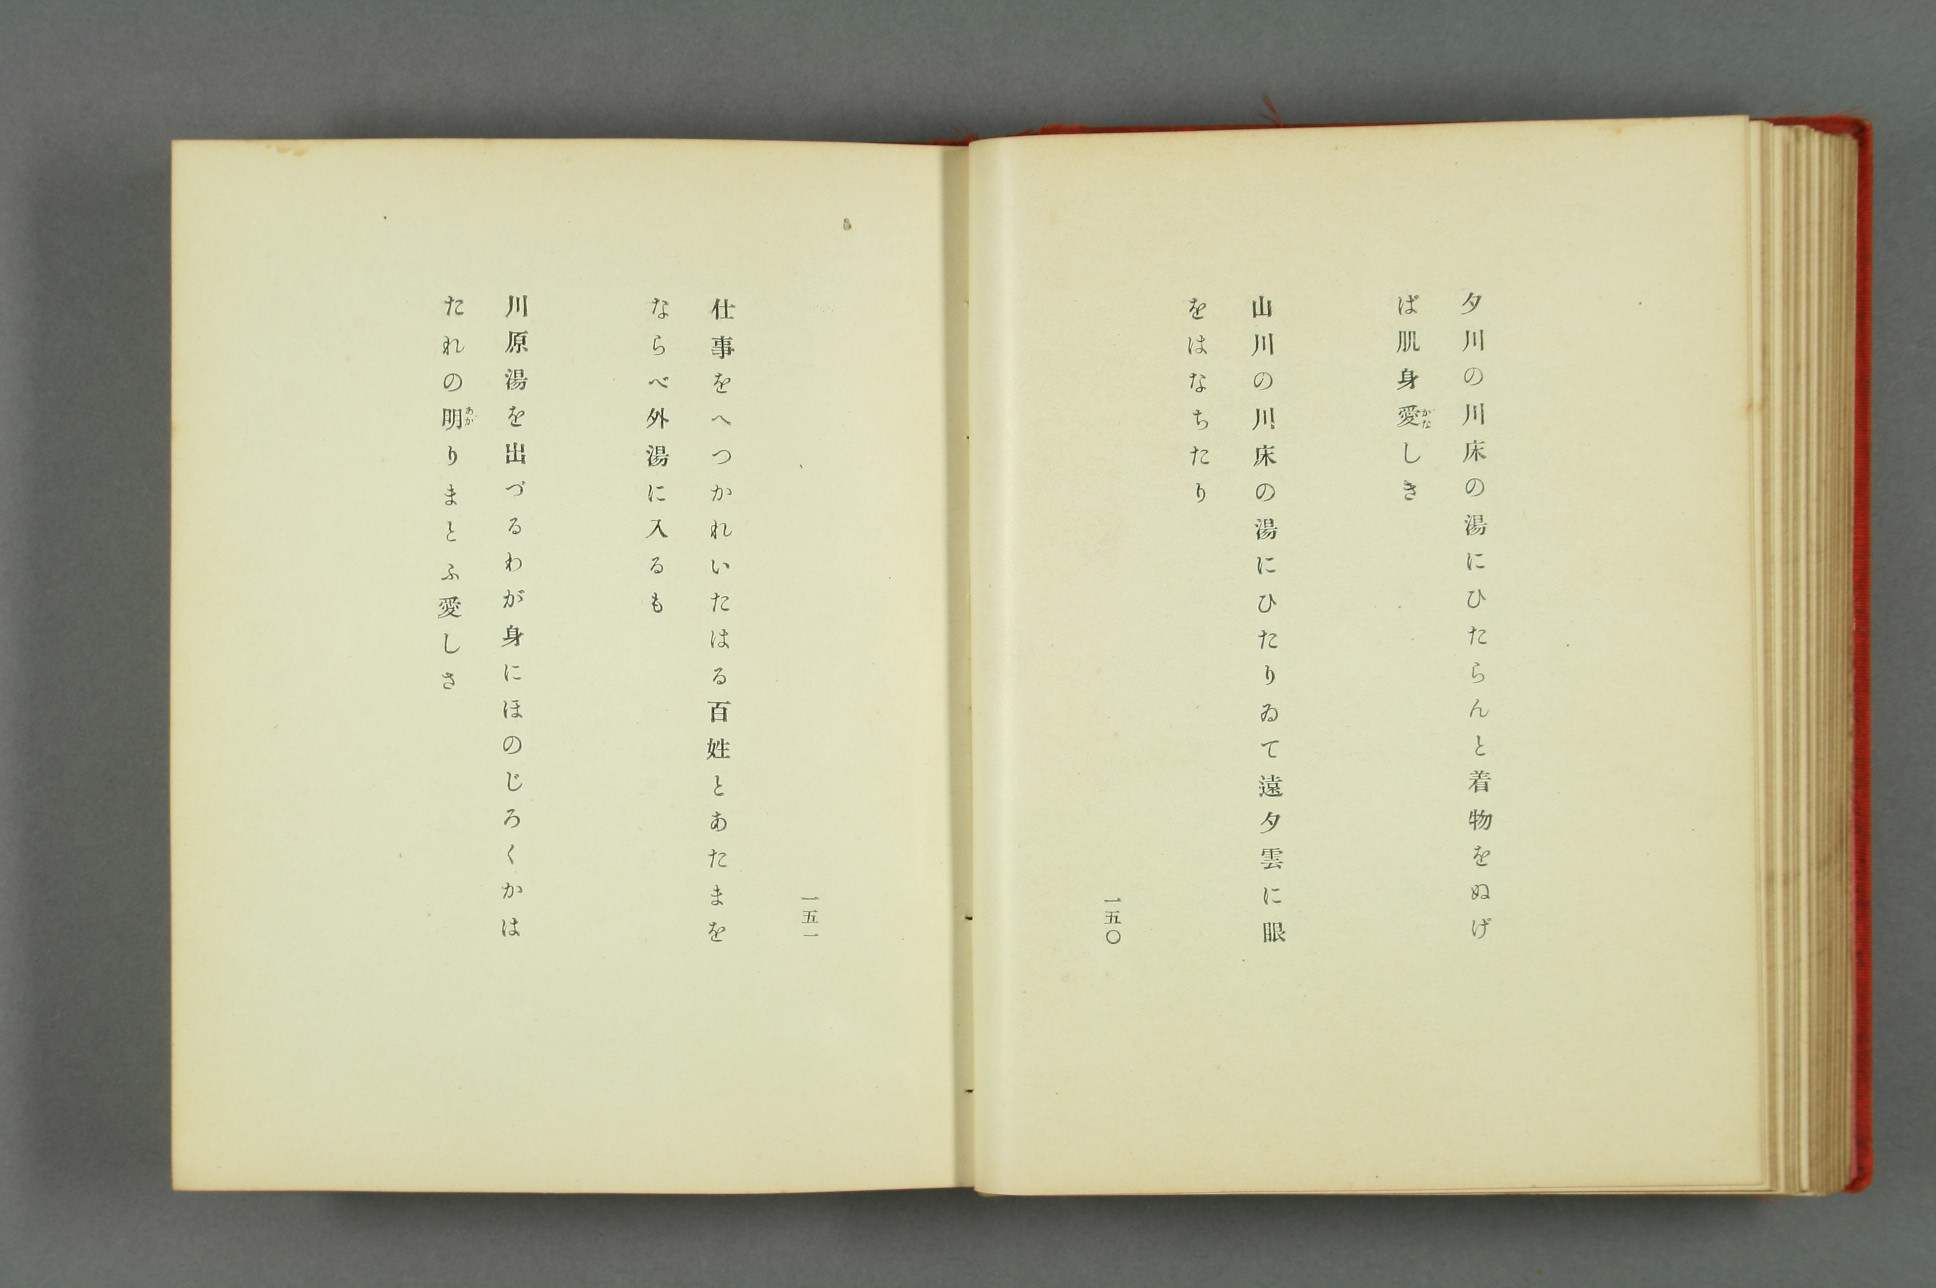 夕川の川床の湯にひたらんと着物をぬげ
ば肌身愛しき
山川の川床の湯にひたりゐて遠夕雲に眼
をはなちたり
一五〇
一五一
仕事をへつかれいたはる百姓とあたまを
ならべ外湯に入るも
川原湯を出づるわが身にほのじろくかは
たれの明りまとふ愛しさ